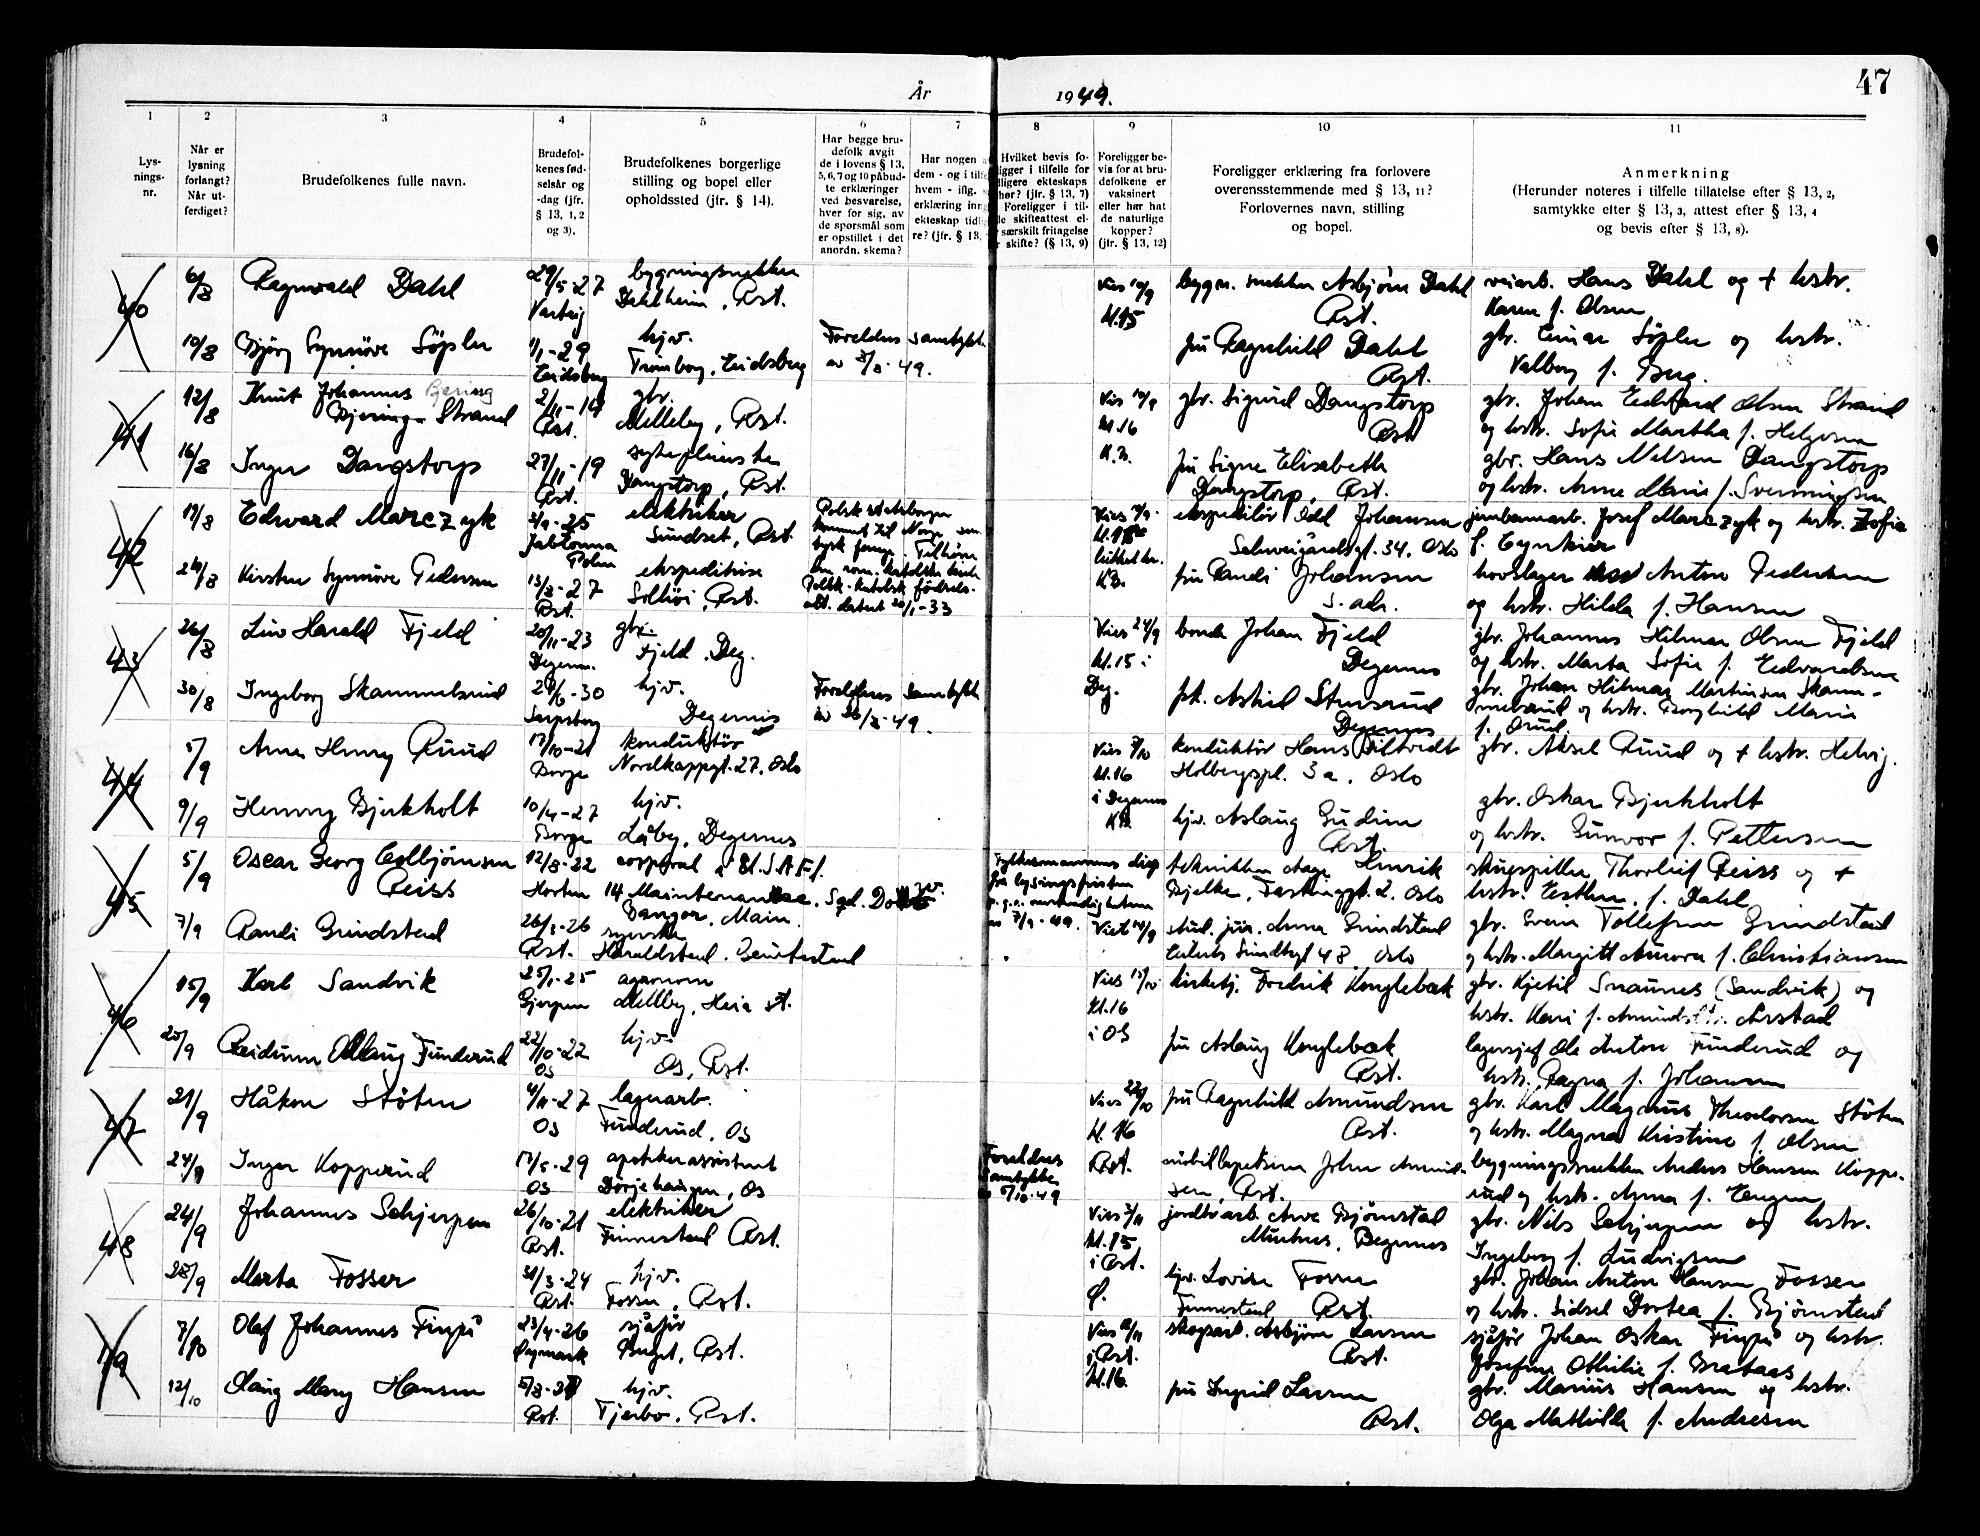 47
År 1949.
1 2 3 4 5 6 7 8 9 10 11
Lys-
nings-
nr.
Når er
lysning
forlangt?
Når ut-
ferdiget?
Brudefolkenes fulle navn.
Brudefol-
kenes fød-
selsår og
-dag (jfr.
§ 13, 1, 2
og 3).
Brudefolkenes borgerlige
stilling og bopel eller
opholdssted (jfr. § 14).
Har begge bru-
defolk avgit
de i lovens § 13,
5, 6, 7 og 10 påbud-
te erklæringer
ved besvarelse,
hver for sig, av
de spørsmål som
er opstillet i det
anordn. skema?
Har nogen a
dem - og i tilf
hvem - iflg.
erklæring inn
ekteskap tidl
re? (jfr. § 13,
Hvilket bevis fo-
ligger i tilfelle for
dligere ekteskaps
hør? (jfr. § 13, 7)
Foreligger i til-
le skifteattest el-
særskilt fritagelse
skifte? (§ 13, 9)
Foreligger be-
vis for at bru-
defolkene er
vaksinert
eller har hat
de naturlige
kopper?
(jfr. § 13, 12)
Foreligger erklæring fra forlovere
overensstemmende med § 13, 11?
Forlovernes navn, stilling
og bopel.
Anmerkning
(Herunder noteres i tilfelle tillatelse efter § 13, 2,
samtykke efter § 13, 3, attest efter § 13, 4
og bevis efter § 13, 8).
40 6/8 Ragnvald Dahl 29/5-27 Varteig bygningssnekker Dahlheim, Rst.
Kl. 15 bygn. snekker Asbjørn Dahl Rst.
veiarb. Hans Dahl og + hstr.
Karen f. Olsen
10/8 Bjørg Synnøve 1/1-29 Eidsberg hjv. Trømborg, Eidsberg
Foreldres samtykke
fru Ragnhild Dahl Rst.
gbr. Einar og hstr.
Valborg f. Berg.
41 12/8 Knut Johannes Bjering
Bjering-Strand Rst. gbr. Melleby, Rst.
Kl. 16 K.B. gbr. Sigurd Dangstorp Rst
gbr. Johan Edvard Olsen Strand
og hstr. Sofie Martha f. Helgesen
16/8 Inger Dangstorp 27/11-19 Rst. sykepleierske Dangstorp, Rst.
fru Signe Elisabeth
Dangstorp, Rst.
gbr. Hans Nilsen Dangstorp
og hstr. Anne Marie f. Svenningsen
42 17/8 Edward Marczyk Jablonna Polen elektriker Sundset, Rst.
Polsk statsborger
kommet til Norge som
tysk fange. Tilhører
den rom. katolske kirke
ekspeditør Odd Johansen
Schweigårdsgt. 34, Oslo
jernbanearb. Josef Marczyk og hstr. Zofia
24/8 Kirsten Synnøve Pedersen 13/8-27 Rst. ekspeditrise Solhøi, Rst.
fru Randi Johansen
s. adr.
hovslager Anton Pedersen
og hstr. Hilda f. Hansen
43 26/8 Leiv Harald Fjeld 20/11-23 Degern. gbr. Fjeld, Deg.
Vies 24/9 Kl. 15 i Deg. bonde Johan Fjeld Degernes
gbr. Johannes Hilmar Olsen Fjeld
og hstr. Marta Sofie f. Edvardsen
30/8 Ingeborg Skammelsrud 29/6-30 Sarpsborg hjv. Degernes
Foreldres samtykke
av 26/8-49.
frk. Astrid Stensrud
Degernes
gbr. Johan Hilmar Martinsen Skam-
melsrud og hstr. Borghild Marie
f. Ruud.
44 5/9 Arne Henry Ruud 17/10-21 Borge konduktør Nordkappgt. 27, Oslo
Kl. 16 i Degernes K.B. konduktør Hans
Holbergspl. 3a, Oslo
gbr. Aksel Ruud og + hstr. Helvig.
9/9 Henny Bjerkholt 10/4-27 Borge hjv. Låby, Degernes
hjv. Aslaug Gudim Rst.
gbr. Oskar Bjerkholt
og hstr. Gunvor f. Pettersen
45 5/9 Oscar Georg Colbjørnsen
Reiss 12/8-22 Horten corporal i U.S.A.F.
14. Maintenance. Sqd.
Bangor, Main.
tekniker Henrik
Bjelke, Fastingsgt. 2, Oslo
skuespiller Thorleif Reiss og +
hstr. Esther, f. Dahl
7/9 Randi Grindstad Rst. syerske Haraldstad,
stud. jur. Arne Grindstad
Eilert Sundtsgt 48 Oslo
gbr. Svein Tollefsen Grindstad
og hstr. Margitt Aurora f. Christiansen
46 15/9 Karl Sandvik 25/1-25 Gjerpen agronom Melleby, Heia st.
Kl. 16 i Os kirketj. Fredrik Konglebæk
gbr. Kjetil Snaunes (Sandvik) og
hstr. Kari f. Årstad
20/9 Reidunn Funderud 22/10-22 Os hjv. Os, Rst.
fru Aslaug Konglebæk Rst.
lagersjef Ole Anton Funderud og
hstr. Ragna f. Johansen
47 21/9 Håkon Støten 4/11-27 Os lagerarb. Funderud, Os
Vies 22/10 Kl. 16 Rst. fru Ragnhild Amundsen Rst.
gbr. Karl Magnus Theodorsen Støten
og hstr. Magna Kristine f. Olsen
24/9 Inger Kopperud 17/5-29 Os apotekerassistent Børjehaugen, Os
Foreldres
samtykke
av 5/10-49
John Amund-
sen, Rst.
bygningssnekker Anders Hansen Koppe-
rud og hstr. Anna f. Engen
48 24/9 Johannes Schjerpen 26/10-21 Rst. elektriker Finnestad Rst.
Kl. 15 i Rst. Ø. jordbr.arb. Arve Bjørnstad
Degernes
gbr. Nils Schjerpen og hstr.
Ingeborg f. Ludvigsen
28/9 Marta Fosser 31/3-24 Rst. hjv. Fosser, Rst.
hjv. Lovise Fosser
Finnestad Rst.
gbr. Johan Anton Hansen Fosser
og hstr. Sidsel Dortea f. Bjørnstad
49 7/10 Olaf Johannes 23/4-26 Øymark sjåfør Rst.
i Rst. Kl. 16. skogsarb. Asbjørn Larsen Rst.
sjåfør Johan Oskar og hstr.
Josefine Othilie f. Brataas
12/10 Olaug Mary Hansen Rst. hjv. Fjerbo, Rst.
fru Ingrid Larsen Rst.
gbr. Marius Hansen og hstr.
Olga Mathilde f. Andresen